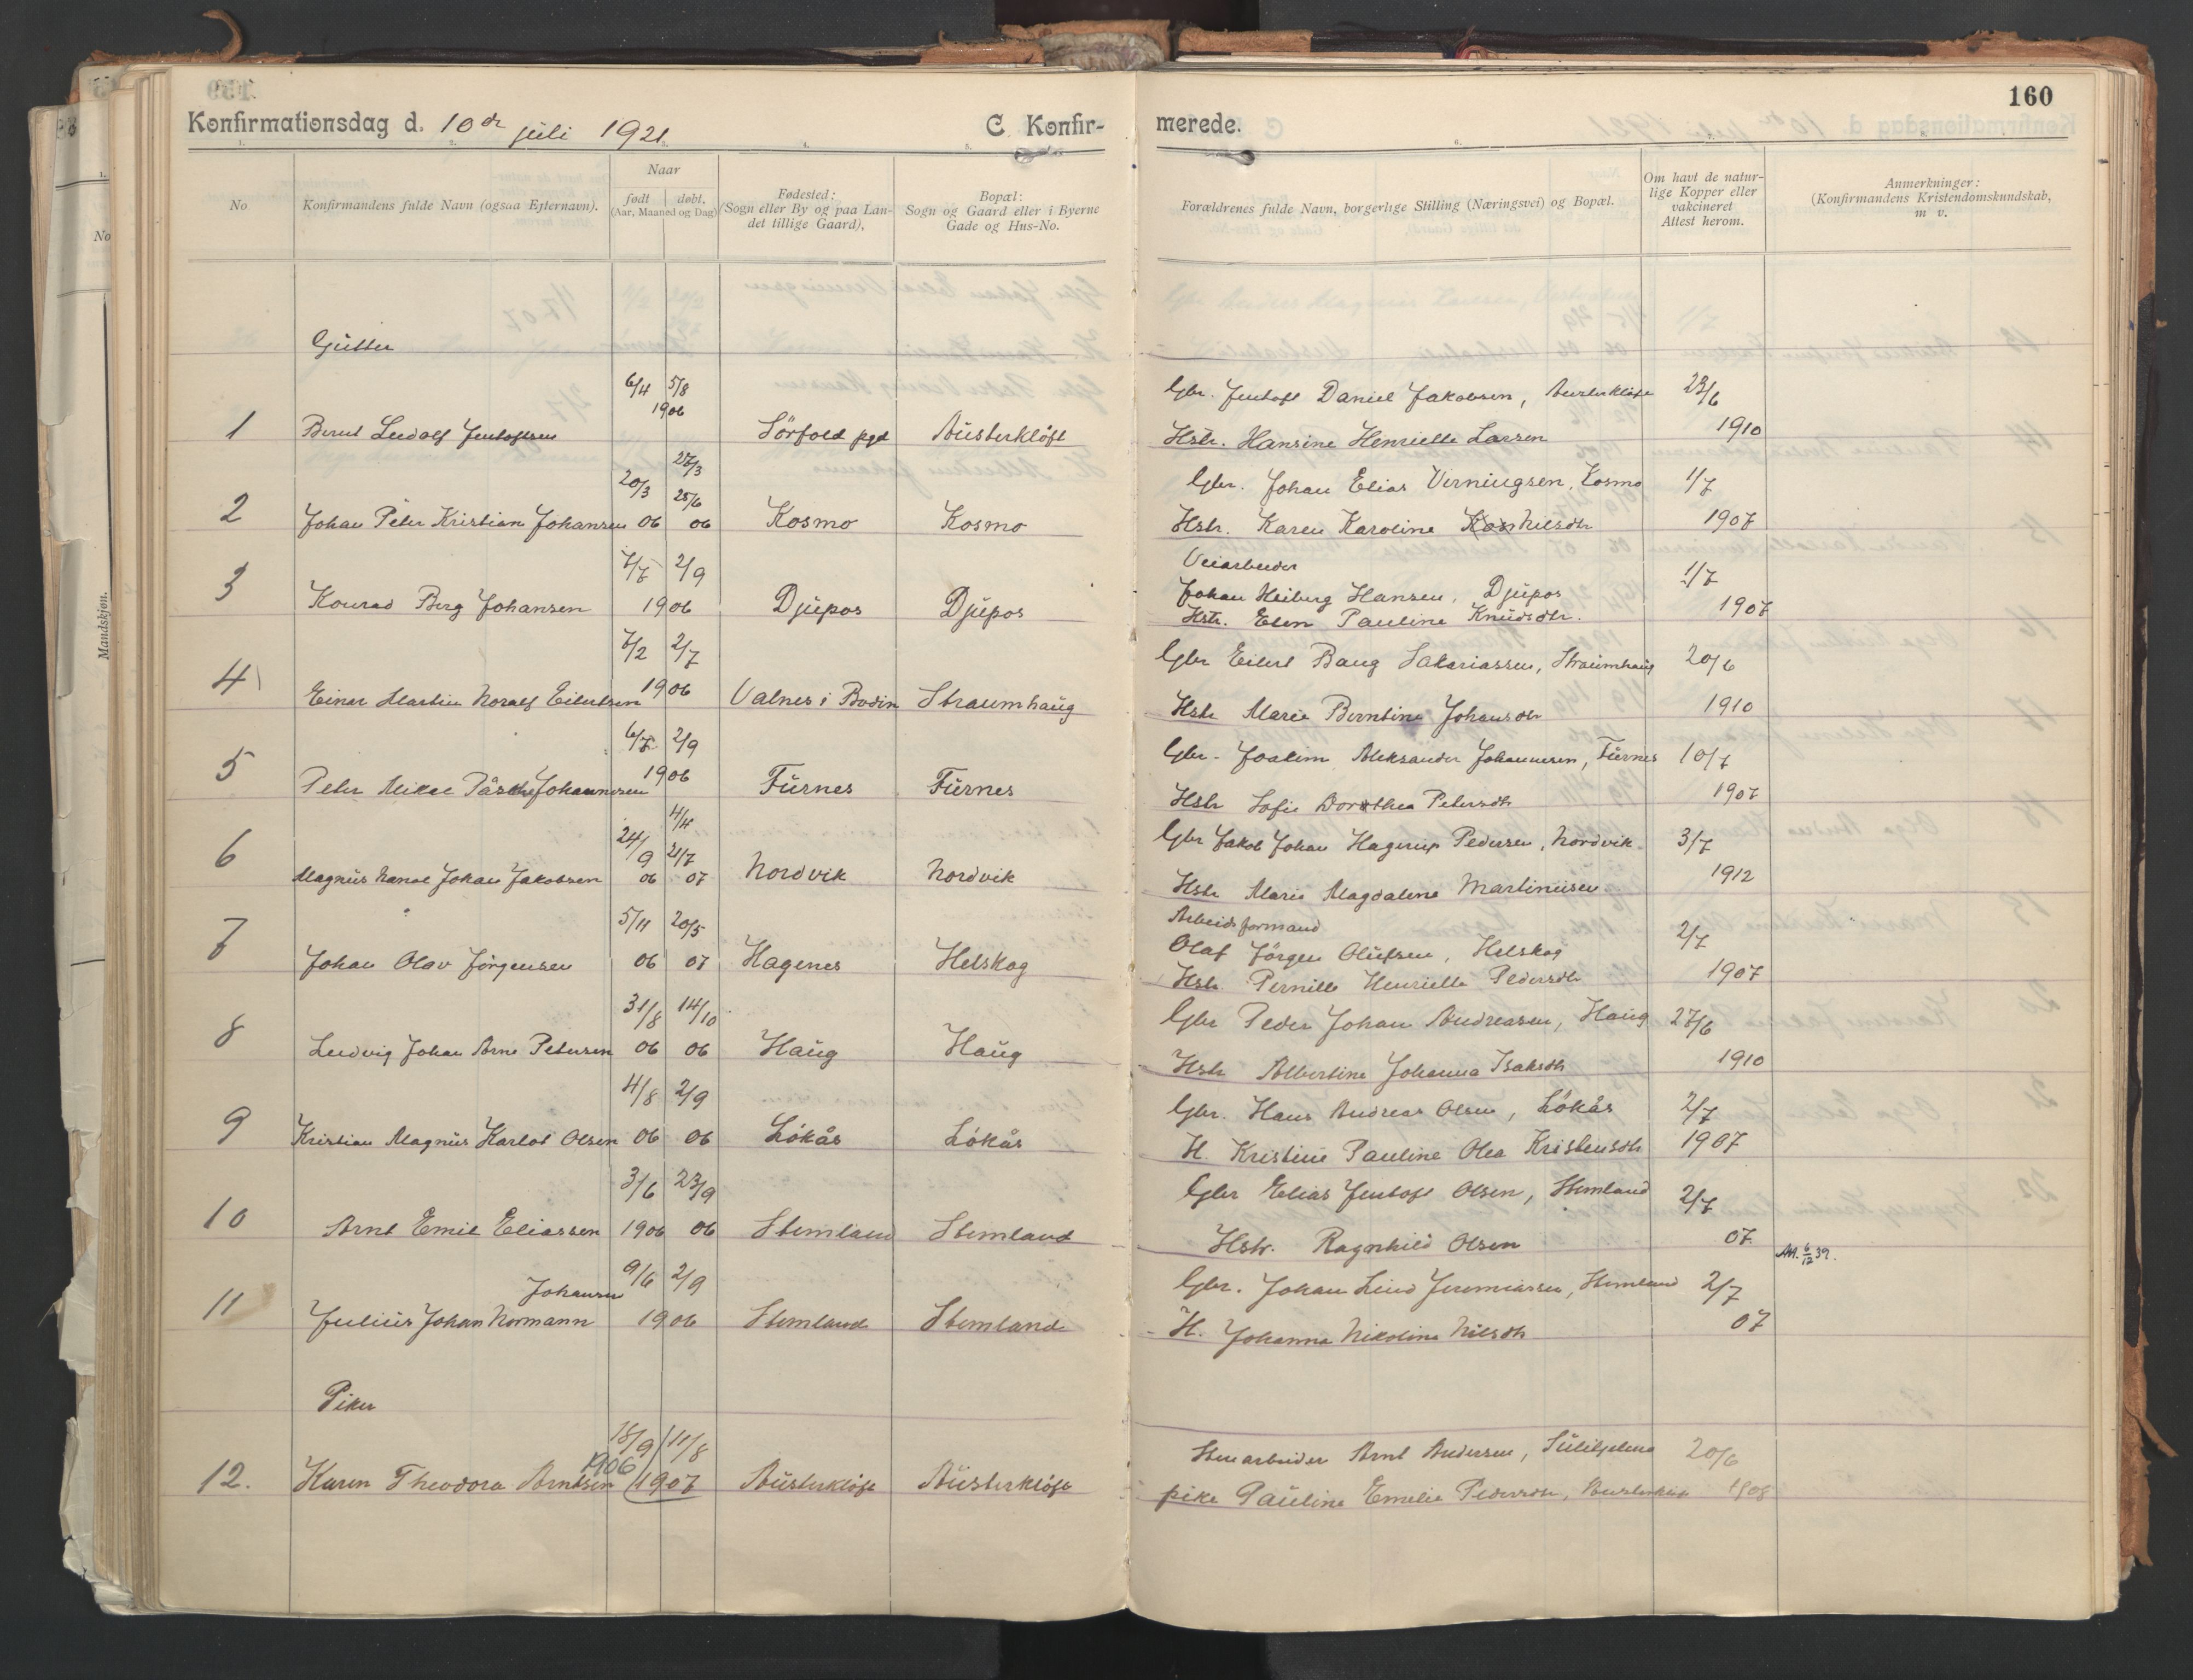 160
Konfirmationsdag d. 10de juli 1921.
C. Konfirmerede.
No
Konfirmandens fulde Navn (ogsaa Efternavn).
Naar
født
døbt,
(Aar, Maaned og Dag)
Fødested:
(Sogn eller By og paa Landet tillige Gaard),
Bopæl:
Sogn og Gaard eller i Byerne Gade og Hus-No.
Forældrenes fulde Navn, borgerlige Stilling (Næringsvei) og Bopæl.
Om havt de naturlige Kopper eller vakcineret Attest herom.
Anmerkninger:
(Konfirmandens Kristendomskundskab, m v.
No
Mandskjøn.
Gutter
1 Bernt Ludolf Jentoftsen 6/4 5/8 1906 Sörfold pgd Austerklöft
Gbr. Jentoft Daniel Jakobsen, Austerklöft 23/6
Hstr. Hansine Henriette Larsen 1910
2 Johan Peter Kristian Johansen 20/3 06 27/3 25/6 06 Kosmo Kosmo
Gbr. Johan Elias Verningsen, Kosmo 1/7
Hstr. Karen Karoline Nilsdtr 1907
3 Konrad Berg Johansen 7/7 2/9 1906 Djupos Djupos
Veiarbeider
Johan Heiberg Hansen, Djupos 1/7
Hstr. Elen Pauline Knudsdtr. 1907
4 Einar Martin Noralf Eilertsen 7/2 2/7 1906 Valnes i Bodin Straumhaug
Gbr Eilert Baug Sakariassen, Straumhaug 20/6
Hstr Marie Berntine Johansdtr 1910
5 Peter Mikal Johannesen 6/7 2/9 1906 Furnes Furnes
Gbr. Joakim Aleksander Johannesen, Furnes 10/7
Hstr Sofie Dorothea Petersdtr 1907
6 Magnus Johan Jakobsen 24/9 06 4/4 21/7 07 Nordvik Nordvik
Gbr Jakob Johan Hagerup Pedersen, Nordvik 3/7
Hstr Marie Magdalene Martinusen 1912
7 Johan Olav Jörgensen 5/11 06 20/5 07 Hagenes Helskog
Arbeidsformand
Olaf Jörgen Olufsen, Helskog 2/7
Hstr. Pernille Henriette Pedersdtr 1907
8 Ludvig Johan Arne Petersen 31/8 06 14/10 06 Haug Haug
Gbr Peder Johan Andreasen, Haug 27/6
Hstr Albertine Johanna Isaksdtr 1910
9 Kristian Magnus Karlot Olsen 4/8 06 2/9 06 Lökås Lökås
Gbr. Hans Andreas Olsen, Lökås 2/7
H. Kristine Pauline Olea Kristensdtr 1907
10 Arnt Emil Eliassen 3/6 1906 23/9 06 Stemland Stemland
Gbr Elias Jentoft Olsen, Stemland 2/7
Hstr. Ragnhild Olsen 07
Att. 6/12 39.
11 Julius Johan Normann Johansen 9/6 2/9 1906 Stemland Stemland
Gbr. Johan Lind Jeremiassen, Stemland 2/7
H. Johanna Nikoline Nilsdtr 07
Piker
12. Karen Theodora Arntsen 18/9 1906 11/8 1907 Austerklöft Austerklöft
Stenarbeider Arnt Andersen, Sulitjelma 20/6
pike Pauline Emelie Pedersdtr, Austerklöft 1908